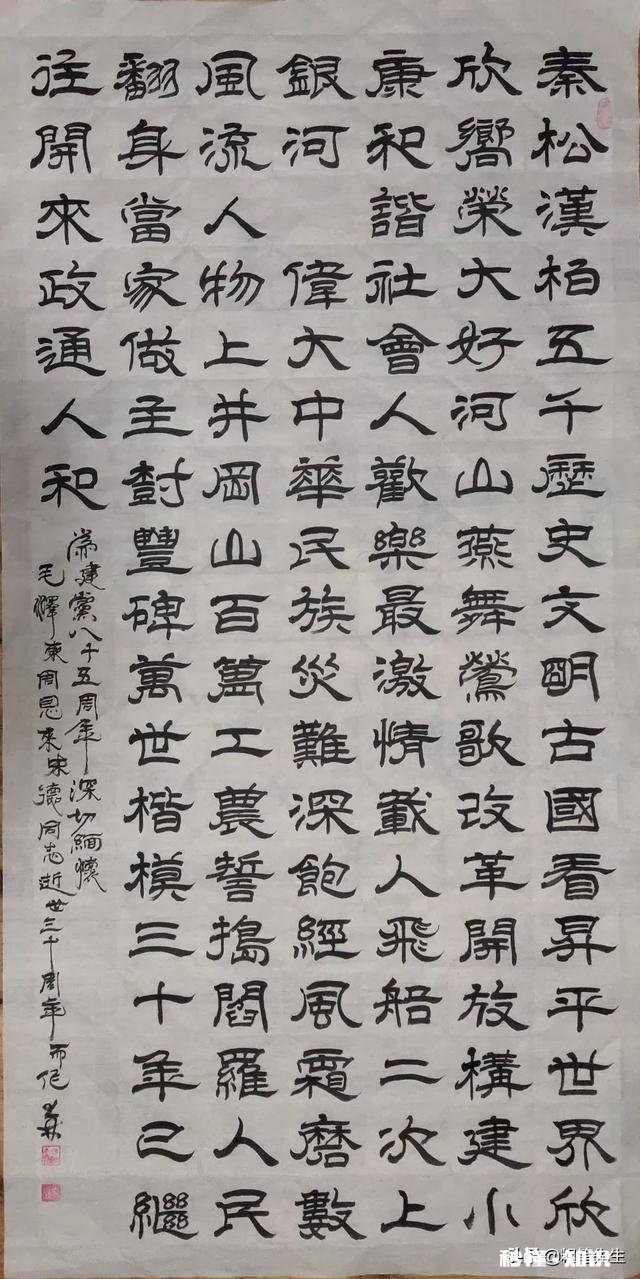 秦松漢柏五千歷史文明古國看昇平世界欣
欣嚮榮大好河山燕舞鶯歌改革開放構建小
康和諧社會人歡樂最激情載人飛船二次上
銀河 偉大中華民族災難深飽經風霜磨數
風流人物上井岡山百萬工農誓搗閻羅人民
翻身當家做主樹豐碑萬世楷模三十年已繼
往開來政通人和
當建黨八十五周年深切緬懷
毛澤東周恩來朱德同志逝世三十周年而作
秒懂·知识